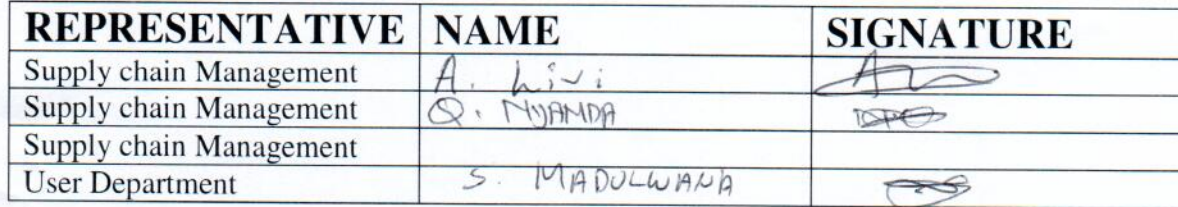 REPRESENTATIVE NAME SIGNATURE
Supply chain Management A. Livi
Supply chain Management Q. NYAMDA
Supply chain Management
User Department S. MADULWANA